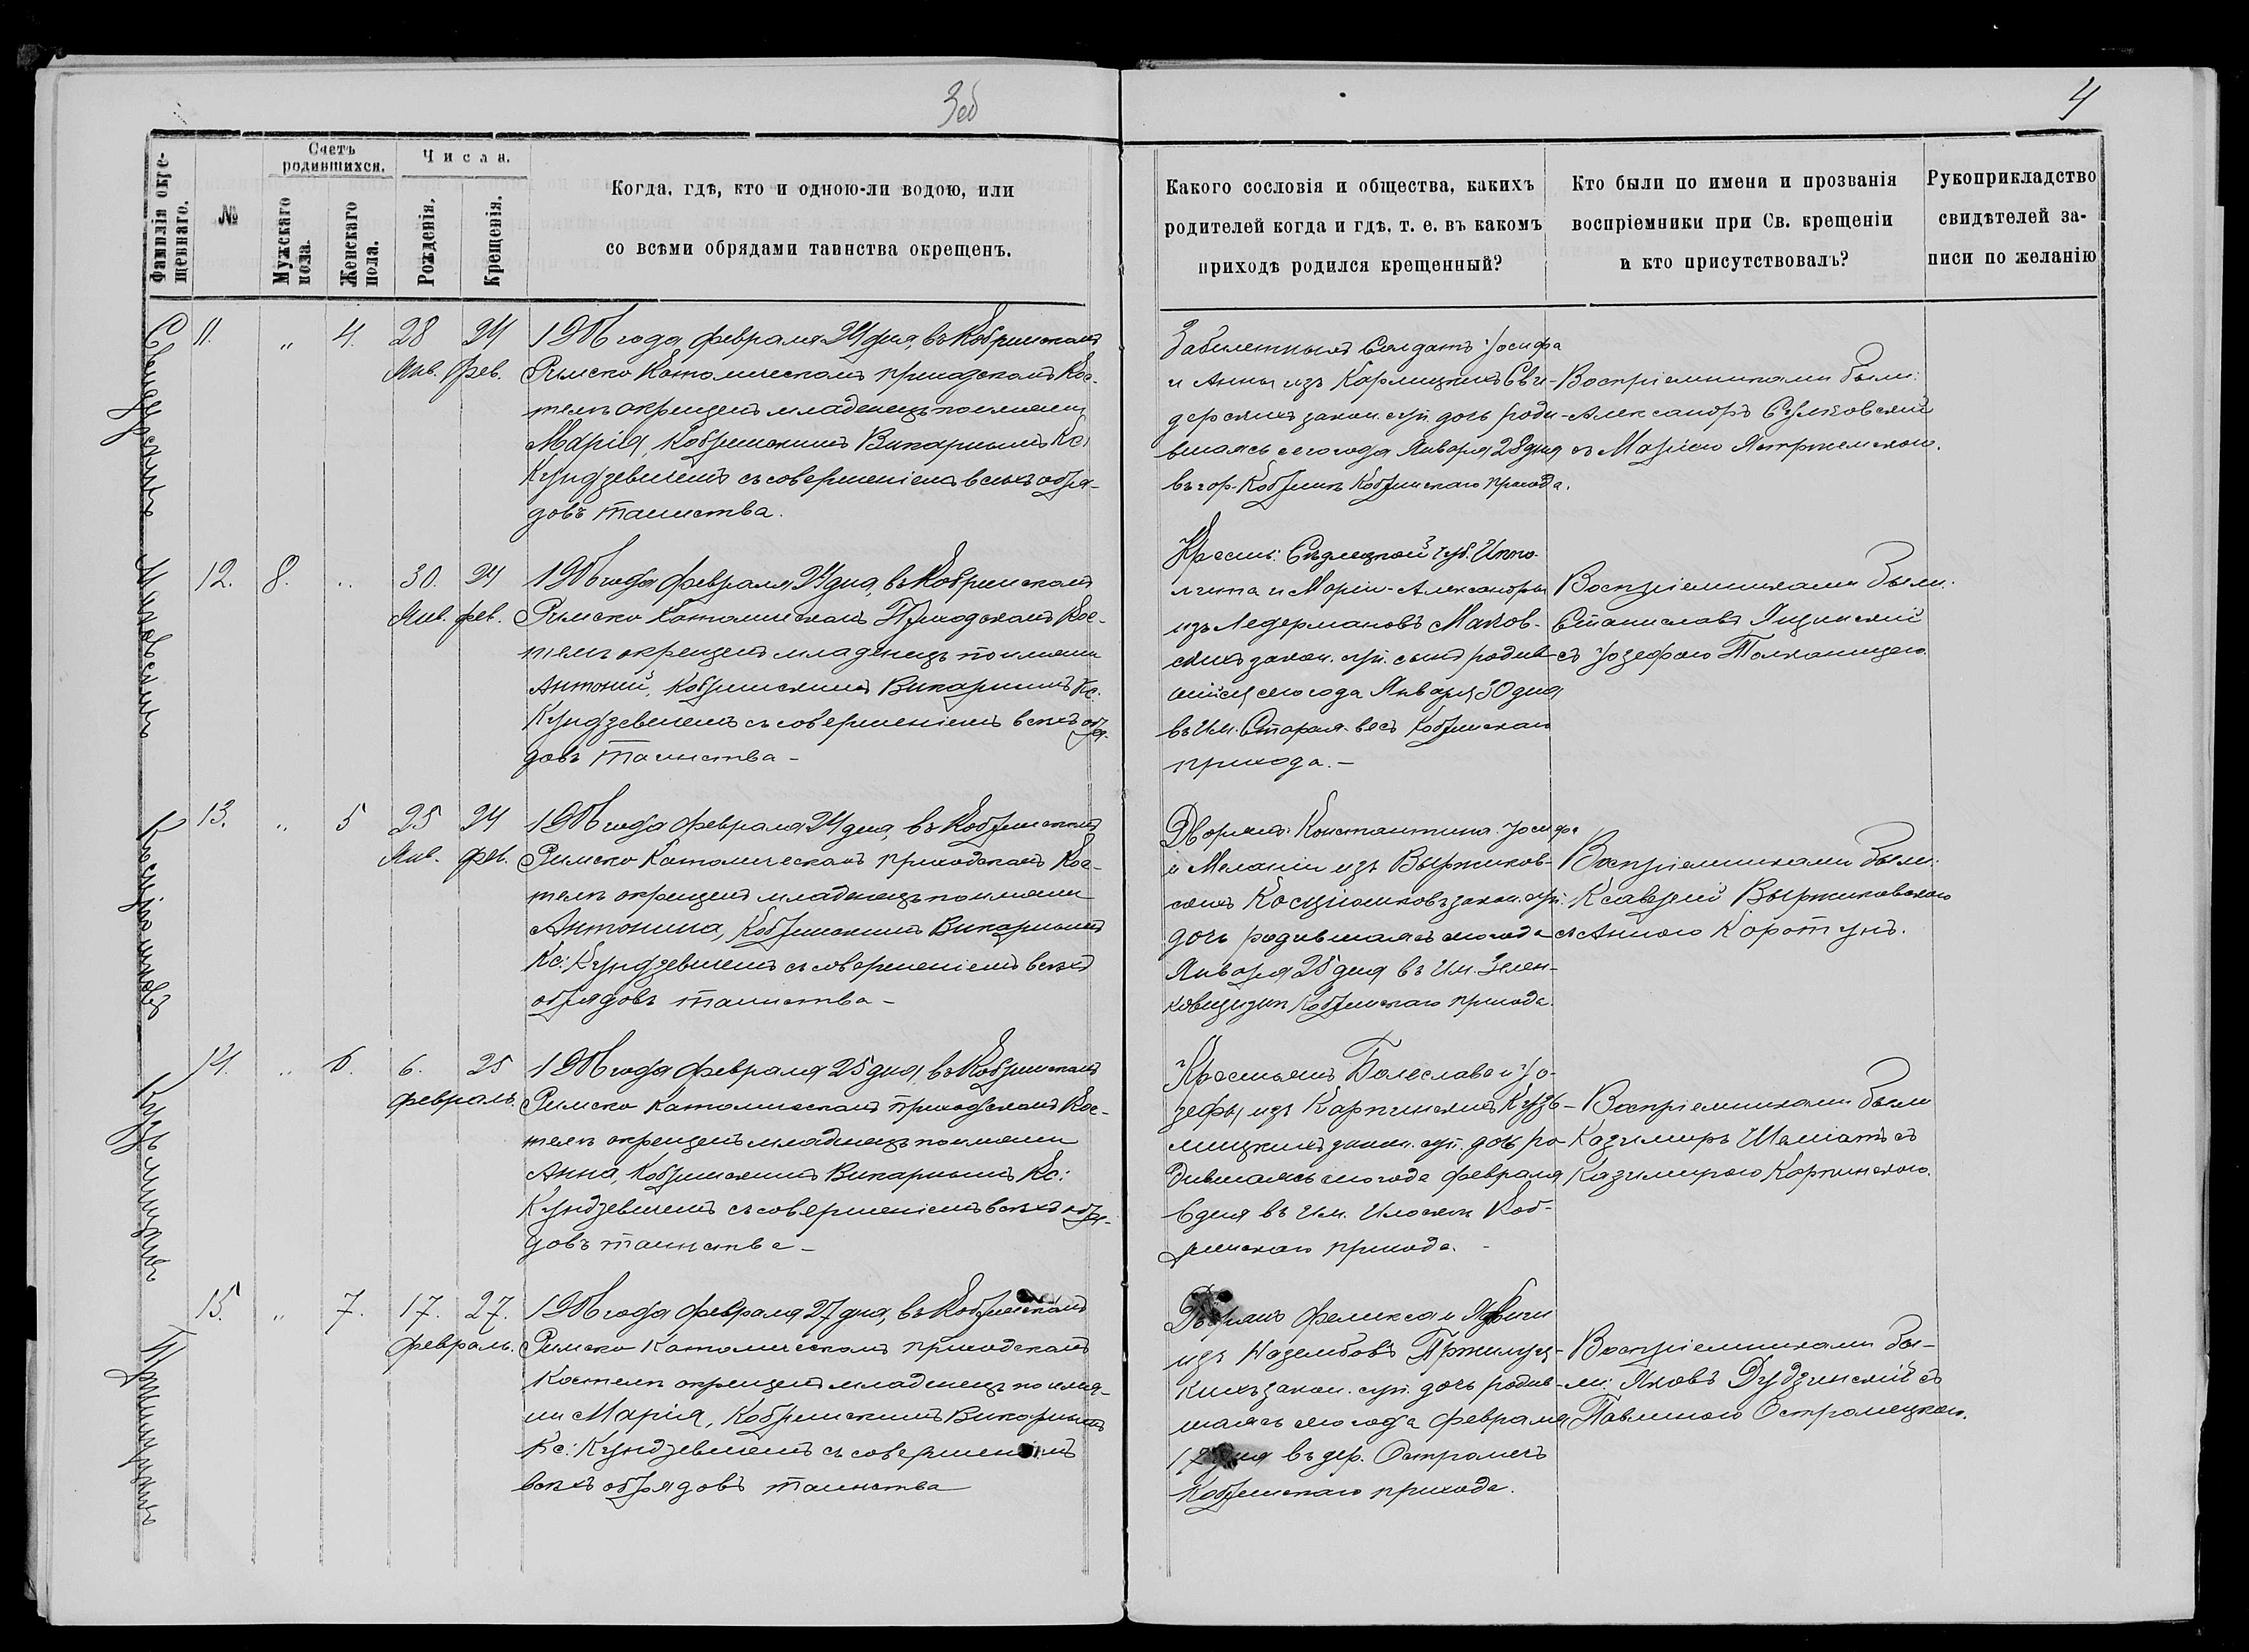 3об
4
Фамилія окре-
щеннаго.
№
Счетъ
родившихся.
Мужскаго
пола.
Женскаго
пола.
Числа.
Рожденія.
Крещенія.
Когда, гдѣ, кто и одною-ли водою, или
со всѣми обрядами таинства окрещенъ.
Какого сословія и общества, какихъ
родителей когда и гдѣ, т. е. въ какомъ
приходѣ родился крещенный?
Кто были по имени и прозванія
воспріемники при Св. крещеніи
и кто присутствовалъ?
Рукоприкладство
свидѣтелей за-
писи по желанію
11. „ 4. 28 24
Янв. Фев.
1906 года февраля 24 дня, въ Кобринскомъ
Римско Католическомъ приходскомъ Кос-
телѣ окрещенъ младенецъ по имени
Марія, Кобринскимъ Викарнымъ Кс:
Кундзевичемъ съ совершеніемъ всѣхъ обря-
довъ таинства.
Солдатъ Іосифа
и Анны изъ
закон. суп. дочь роди-
вшаясь сего года Января 28 дня
въ гор. Кобринѣ Кобринскаго прихода.
Воспріемниками были:
Александръ
съ Маріею
Маковскій
12. 8. „ 30. 24
Янв. фев.
1906 года февраля 24 дня, въ Кобринскомъ
Римско Католическомъ Приходскомъ Кос-
телѣ окрещенъ младенецъ по имени
Антоній, Кобринскимъ Викарнымъ Кс:
Кундзевичемъ съ совершеніемъ всѣхъ обря-
довъ таинства –
Крестьян: Сѣдлецкой губ. Иппо-
лита и Маріи-Александры
изъ Ледермановъ Маков-
скихъ закон. суп. сынъ родив-
шійся сего года Января 30 дня
въ Им. Старая-весь Кобринскаго
прихода. –
Воспріемниками были:
Станиславъ
съ Іозефою
13. „ 5 25 24
Янв. Фев.
1906 года февраля 24 дня, въ Кобринскомъ
Римско Католическомъ приходскомъ Кос-
телѣ окрещенъ младенецъ по имени
Антонина, Кобринскимъ Викарнымъ
Кс: Кундзевичемъ съ совершеніемъ всѣхъ
обрядовъ таинства –
Дворянъ: Константина-Іосифа
и Меланіи изъ Выржиков-
скихъ Косцюшковъ закон. суп.
дочь родившаясь сего года
Января 25 дня въ Им.
Кобринскаго прихода.
Воспріемниками были:
Ксаверій Выржиковскій
съ Анною Коротунъ.
14. „ 6. 6. 25
Февраль.
1906 года февраля 25 дня, въ Кобринскомъ
Римско Католическомъ приходскомъ Кос-
телѣ окрещенъ младенецъ по имени
Анна, Кобринскимъ Викарнымъ Кс:
Кундзевичемъ съ совершеніемъ всѣхъ обря-
довъ таинства –
Крестьянъ Болеслава и Іо-
зефы изъ Карпинскихъ Кузь-
мицкихъ закон. суп. дочь ро-
дившаясь сего года февраля
6 дня въ Им. Коб-
ринскаго прихода. –
Воспріемниками были
Казимиръ съ
Казимирою Карпинскою.
15. „ 7. 17. 27.
Февраль.
1906 года февраля 27 дня, въ Кобринскомъ
Римско Католическомъ приходскомъ
Костелѣ окрещенъ младенецъ по име-
ни Марія, Кобринскимъ Викарнымъ
Кс: Кундзевичемъ съ совершеніемъ
всѣхъ обрядовъ таинства
Дворянъ Феликса и Ядвиги
изъ
закон. суп. дочь родив-
шаясь сего года февраля
17 дня въ дер. Остромечъ
Кобринскаго прихода.
Воспріемниками бы-
ли: Яковъ Дудзинскій съ
Павлиною Остромецкою.